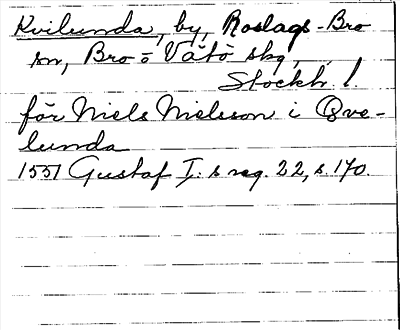 Kvilunda, by, Roslags-Bro
sn, Bro o Vätö skg,
Stockh. l.
för Niels Nielsson i Qve-
lunda
1551 Gustaf I:s reg. 22, s. 170.